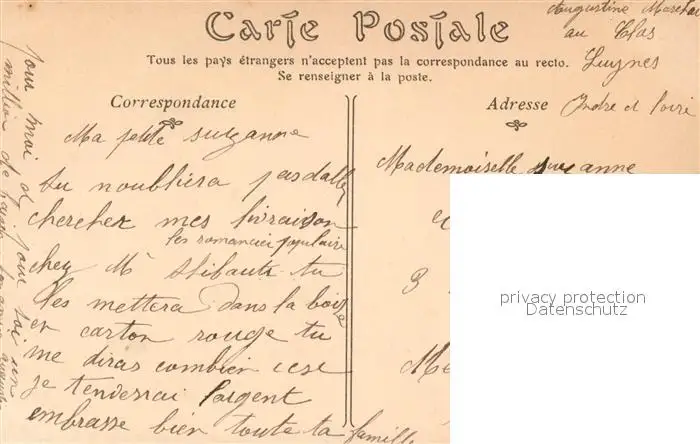 Carte Postale
Tous les pays étrangers n'acceptent pas la correspondance au recto.
Se renseigner à la poste.
Augustine
au Clos
Luynes
Indre et loire
Correspondance
Adresse
Ma petite suzanne
tu noubliera pas daller
chercher mes livraison
les romancier populaire
chez Mr tu
les mettera dans la boite
en carton rouge tu
me diras combien cese
je tenverrai largent
embrasse bien toute ta famille
pour moi et pour toi un
million de
Mademoiselle suzanne
3
privacy protection
Datenschutz